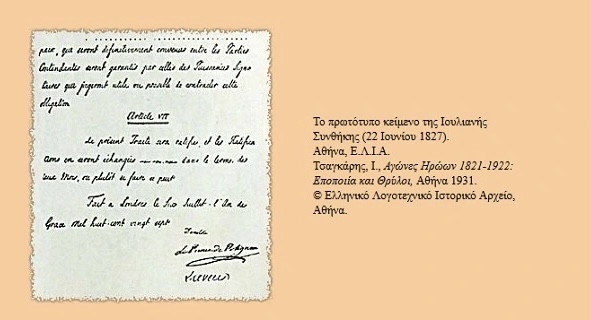 paix, qui seront définitivement convenus entre les Parties
Contendantes seront garantis par celles des Puissances Signa
taires qui jugeront utile ou possible de contracter cette
obligation
Article VII
Le présent Traité sera ratifié, et les Ratifica
tions en seront échangées dans le terme de
deux Mois, ou plutôt si faire se peut
Fait à Londres le Six Juillet. l'An de
Grace Mil huit-cent vingt sept
Le Prince de Polignac
Lieven
Το πρωτότυπο κείμενο της Ιουλιανής
Συνθήκης (22 Ιουνίου 1827).
Αθήνα, Ε.Λ.Ι.Α.
Τσαγκάρης, Ι., Αγώνες Ηρώων 1821-1922:
Εποποιία και Θρύλοι, Αθήνα 1931.
© Ελληνικό Λογοτεχνικό Ιστορικό Αρχείο,
Αθήνα.